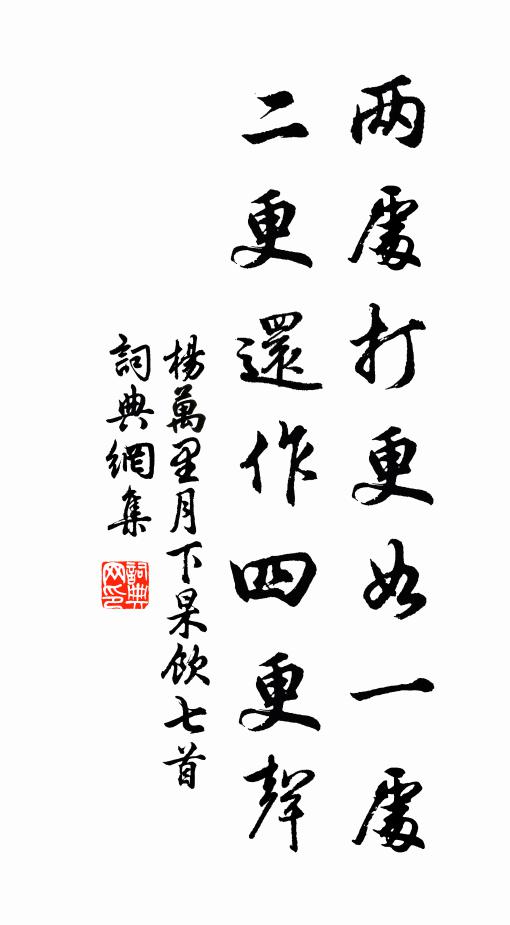 两處打更如一處
二更還作四更聲
楊萬里月下杲飲七首
詞典網集
詞典網印